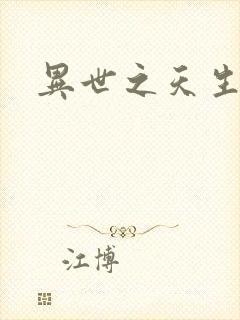 異世之天生
江博